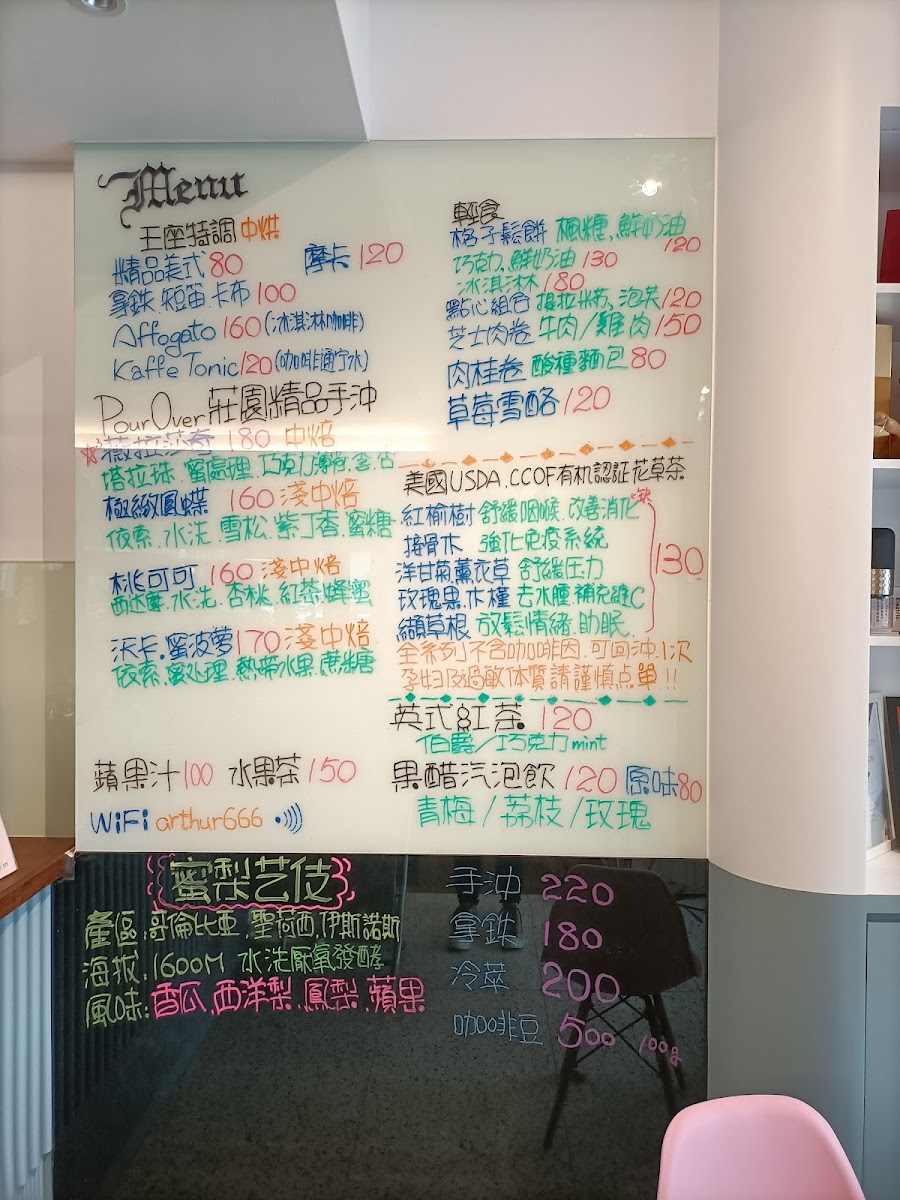 Menu
王座特調 中烘
精品美式 80 摩卡 120
拿鉄.短笛.卡布 100
Affogato 160 (冰淇淋咖啡)
Kaffe Tonic 120 (咖啡通宁水)
Pour Over 莊園精品手沖
薇拉莎奇 180 中焙
塔拉珠.蜜處理.巧克力
極緻鳳蝶 160 淺中焙
依索.水洗.雪松.紫丁香.蜜糖
桃可可 160 淺中焙
西達摩.水洗.杏桃.紅茶.蜂蜜
沃卡.蜜波蘿 170 淺中焙
依索.蜜处理.熱帶水果.蔗糖
蘋果汁 100 水果茶 150
WiFi arthur666
輕食
格子鬆餅 楓糖、鮮奶油 120
巧克力、鮮奶油 130
冰淇淋 180
點心組合 提拉米蘇、泡芙 120
芝士肉卷 牛肉/雞肉 150
肉桂卷 酸種麵包 80
草莓雪酪 120
美國USDA.CCOF有机認証花草茶
紅榆樹 舒緩咽喉.改善消化 缺
接骨木 強化免疫系統
洋甘菊.薰衣草 舒緩圧力
玫瑰果.木槿 去水腫.補充維C
纈草根 放鬆情緒.助眠
130
全系列不含咖啡因.可回沖1次
孕妇及過敏体質請謹慎点單!!
英式紅茶 120
伯爵/巧克力mint
果醋汽泡飲 120 原味 80
青梅/荔枝/玫瑰
蜜梨艺伎
產區:哥倫比亞.聖荷西.伊斯諾斯
海拔:1600M 水洗厭氧發酵
風味:香瓜.西洋梨.鳳梨.蘋果
手沖 220
拿鉄 180
冷萃 200
咖啡豆 500 100g